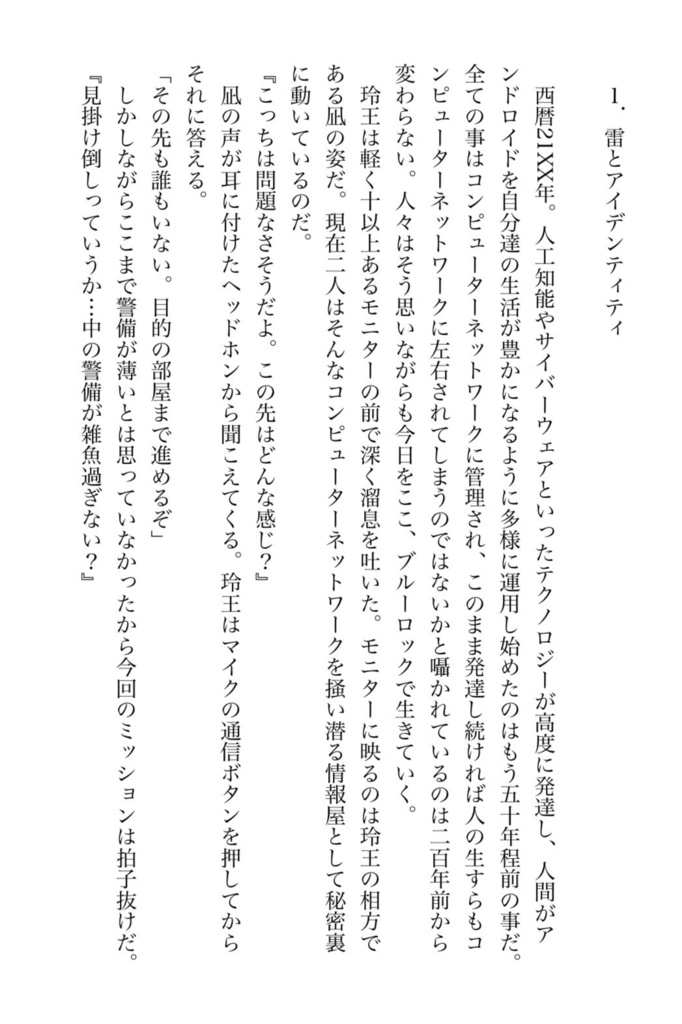 1. 雷とアイデンティティ
西暦21XX年。人工知能やサイバーウェアといったテクノロジーが高度に発達し、人間がア
ンドロイドを自分達の生活が豊かになるように多様に運用し始めたのはもう五十年程前の事だ。
全ての事はコンピューターネットワークに管理され、このまま発達し続ければ人の生すらもコ
ンピューターネットワークに左右されてしまうのではないかと囁かれているのは二百年前から
変わらない。人々はそう思いながらも今日をここ、ブルーロックで生きていく。
玲王は軽く十以上あるモニターの前で深く溜息を吐いた。モニターに映るのは玲王の相方で
ある凪の姿だ。現在二人はそんなコンピューターネットワークを掻い潜る情報屋として秘密裏
に動いているのだ。
『こっちは問題なさそうだよ。この先はどんな感じ？』
凪の声が耳に付けたヘッドホンから聞こえてくる。玲王はマイクの通信ボタンを押してから
それに答える。
「その先も誰もいない。目的の部屋まで進めるぞ」
しかしながらここまで警備が薄いとは思っていなかったから今回のミッションは拍子抜けだ。
『見掛け倒しっていうか…中の警備が雑魚過ぎない？』